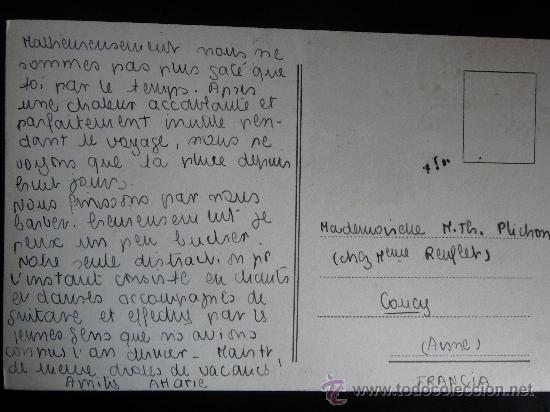 Malheureusement nous ne
sommes pas plus gaté que
toi par le temps. Après
une chaleur accablante et
parfaitement inutile pen-
dant le voyage, nous ne
voyons que la pluie depuis
huit jours.
Nous finissons par nous
barber. heureusement je
peux un peu bucher.
Notre seule distraction pr
l'instant consiste en chants
et danses accompagnés de
guitare et effectués par les
jeunes gens que ns avions
connus l'an dernier -
de même droles de vacances!
Amitiés AMarie
Mademoiselle M. Th. Plichon
(chez Mme)
Coucy
(Aisne)
FRANCIA
todocoleccion
www.todocoleccion.net